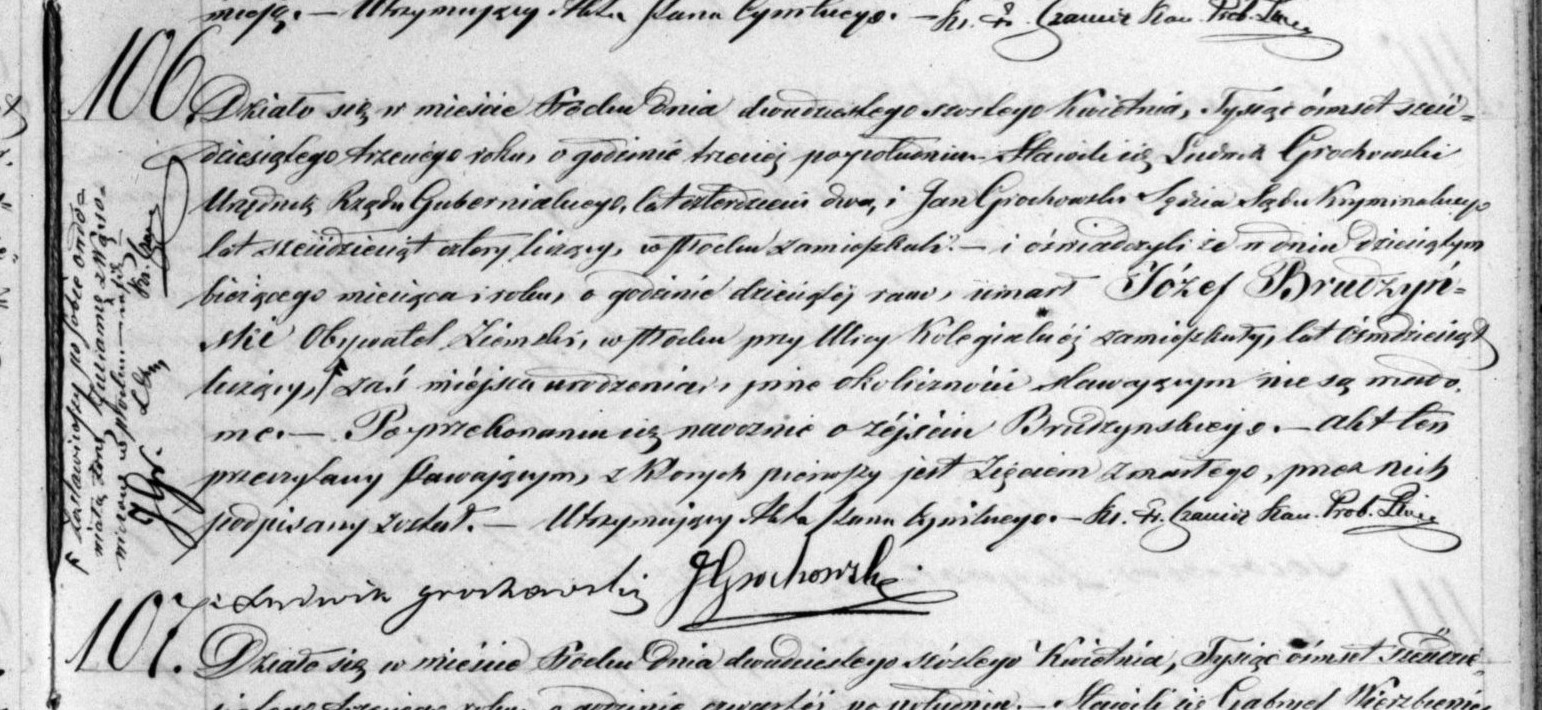 miejsc. — Utrzymujący Akta Stanu Cywilnego. — Ks. Kan. Prob.
106
Działo się w mieście Płocku Dnia dwudziestego szóstego Kwietnia, Tysiąc óśmset sześć=
dziesiątego trzeciego roku, o godzinie trzeciej po południu. Stawili się Ludwik Grochowski
Urzędnik Rządu Gubernialnego, lat czterdzieści dwa, i Jan Grochowski Sędzia Sądu Kryminalnego
lat sześćdziesiąt cztery liczący, w Płocku zamieszkali. — i oświadczyli że w dniu dziesiątym
bieżącego miesiąca i roku, o godzinie dziesiątej rano, umarł Józef Brudzyń=
ski Obywatel Ziemski, w Płocku przy Ulicy Kolegialnéj zamieszkały, lat ośmdziesiąt
liczący, zaś miejsca urodzenia, inne okoliczności stawającym nie są wiado
me. — Po przekonaniu się naocznie o zejściu Brudzynskiego. — Akt ten
przeczytany stawającym, z których pierwszy jest Zięciem zmarłego, przez nich
podpisany został. — Utrzymujący Akta Stanu Cywilnego. — Ks. Kan. Prob.
Ludwik Grochowski JGrochowski
zostawiwszy po sobie owdo=
wiałą żonę Juliannę z
w Płocku
JGr. Ks.
107.
Działo się w mieście Płocku Dnia dwudziestego szóstego Kwietnia, Tysiąc óśmset sześćdzie=
siątego trzeciego roku, o godzinie czwartéj po południu. — Stawili się Gabryel